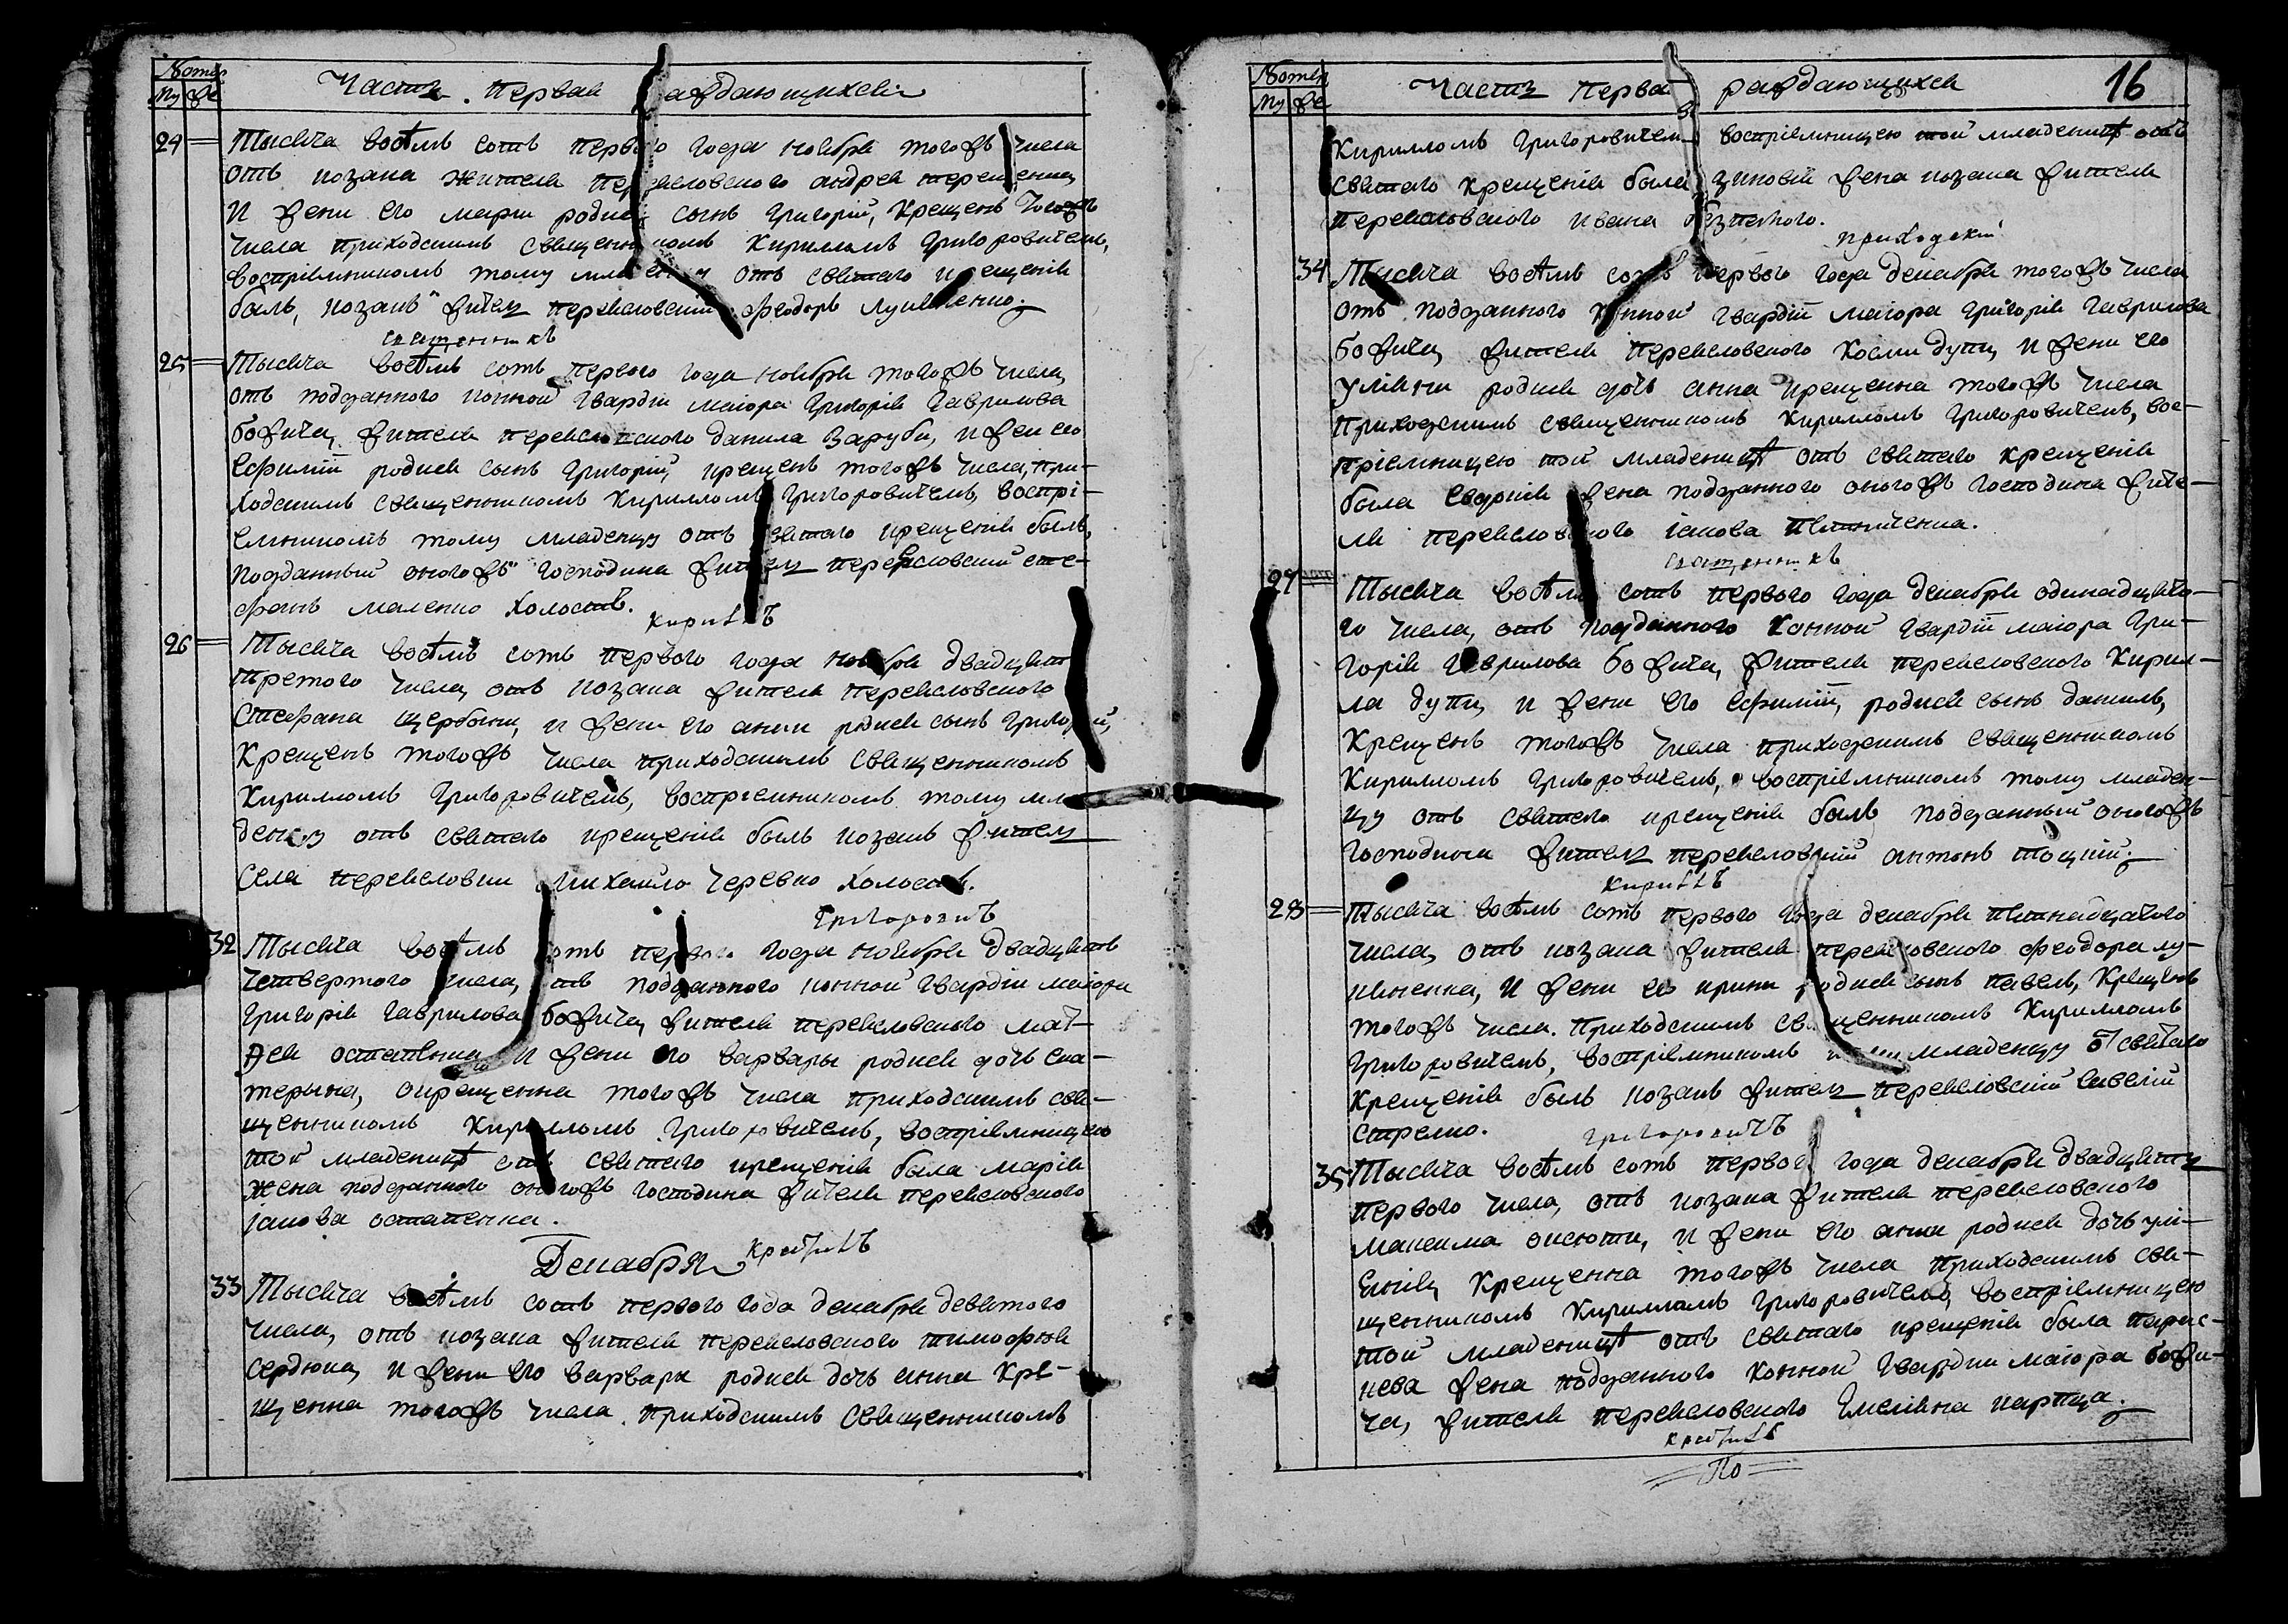 Номер
Му Же
Часть Первая раждающихся
24 Тысяча восѣмъ сотъ перваго года ноября тогожъ числа
отъ козака жителя переясловского андрея терещенка
и жени его марѝи родися сынъ григорій, крещенъ тогожъ
числа приходскимъ священникомъ Кирилломъ Григоровичемъ,
воспріемникомъ тому младенцу отъ святаго крещенія
былъ, козакъ житель переясловскій феодоръ
священникъ
25 Тысяча восѣмъ сотъ первого года ноября тогожъ числа,
отъ подданного конной гвардіи маіора григорія гаврилова
божича, жителя переясловского данила заруби, и жени его
ефиміи родися сынъ григорій, крещенъ тогожъ числа, при-
ходскимъ священникомъ Кирилломъ Григоровичемъ, воспрі-
емникомъ тому младенцу отъ святаго крещенія былъ,
подданный оногожъ господина житель переясловскій сте-
фанъ маленко холостъ.
Кириллъ
26 Тысяча восѣмъ сотъ первого года ноября двадцать
третого числа, отъ козака жителя переясловского
стефана щербани, и жени его анни родися сынъ григорій,
крещенъ тогожъ числа приходскимъ священникомъ
Кирилломъ Григоровичемъ, воспріемникомъ тому мла
денцу отъ святаго крещенія былъ козакъ житель
села переясловки михайло черевко холостъ.
Григоровичъ
32 Тысяча восѣмъ сотъ первого года ноября двадцать
четвертого числа, отъ подданного конной гвардіи маіора
григорія гаврилова божича, жителя переясловского мат-
ѳея остапенка и жени его варвары родися дочь ека-
терына, окрещенна тогожъ числа приходскимъ свя-
щенникомъ Кирилломъ Григоровичемъ, воспріемницею
той младеницѣ отъ святаго крещенія была марія
жена подданного оногожъ господина жителя переясловского
іакова остапенка.
Декабря
крестилъ
33 Тысяча восѣмъ сотъ первого года декабря девятого
числа, отъ козака жителя переясловского тимофея
сердюка, и жени его варвары родися дочь анна кре-
щенна тогожъ числа приходскимъ священникомъ
Номер
Му Же
Часть Первая раждающихся 16
Кирилломъ Григоровичемъ воспріемницею той младеницѣ отъ
святаго крещенія была зиновія жена козака жителя
переясловского ивана безпалого.
приходскій
34 Тысяча восѣмъ сотъ первого года декабря тогожъ числа
отъ подданного конной гвардіи маіора григорія гаврилова
божича, жителя переясловского косми дупи, и жени его
уліяни родися дочь анна крещенна тогожъ числа
приходскимъ священникомъ Кирилломъ Григоровичемъ, вос-
пріемницею той младеницѣ отъ святаго крещенія
была евдокія жена подданного оногожъ господина жите-
ля переясловского іакова
священникъ
27 Тысяча восѣмъ сотъ первого года декабря одинадцято-
го числа, отъ подданного конной гвардіи маіора гри-
горія гаврилова божича, жителя переясловского Кирил-
ла дупи, и жени его ефиміи, родися сынъ данилъ,
крещенъ тогожъ числа приходскимъ священникомъ
Кирилломъ Григоровичемъ, воспріемникомъ тому младен-
цу отъ святаго крещенія былъ подданный оногожъ
господина житель переясловскій антонъ тоцкій
Кириллъ
28 Тысяча восѣмъ сотъ первого года декабря пятнадцатого
числа, отъ козака жителя переясловского феодора лу-
кяненка, и жени его ирини родися сынъ павелъ, крещенъ
тогожъ числа приходскимъ священникомъ Кирилломъ
Григоровичемъ, воспріемникомъ младенцу ѿ святаго
крещенія былъ козакъ житель переясловскій савелій
стрелко.
Григоровичъ
35 Тысяча восѣмъ сотъ первого года декабря двадцять
первого числа, отъ козака жителя переясловского
максима оксюти, и жени его анни родися дочь улі-
янія, крещенна тогожъ числа приходскимъ свя-
щенникомъ Кирилломъ Григоровичемъ, воспріемницею
той младеницѣ отъ святаго крещенія была парас-
кева жена подданного конной гвардіи маіора божи-
ча, жителя переясловского емеліяна карпца.
крестилъ
По